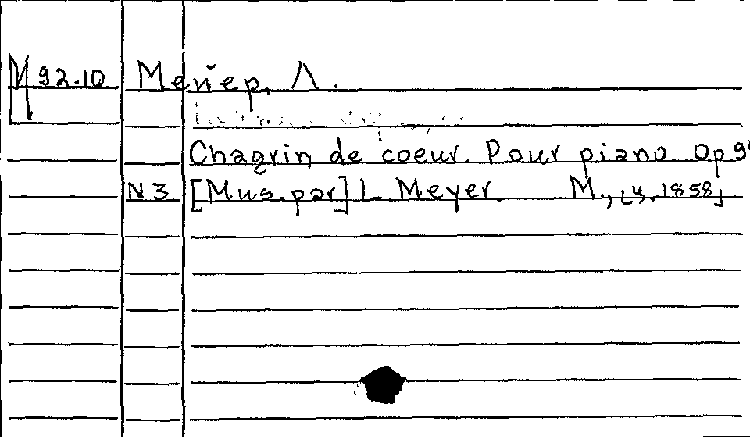 М 92.10 Мейер, Л.
Chagrin de coeur. Pour piano. Op 9
N 3 [Mus. par] L. Meyer. M., [ц. 1858]